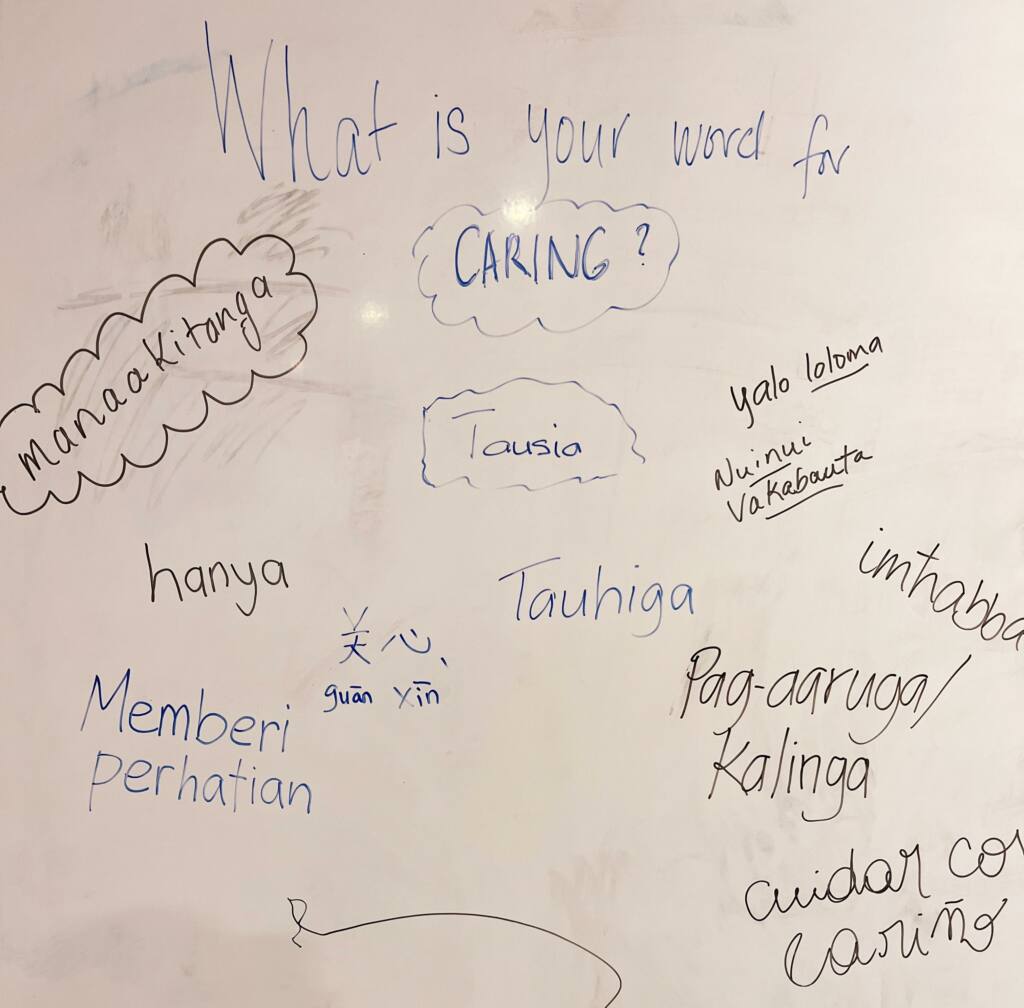 What is your word for
CARING?
manaakitanga
Tausia
yalo loloma
Nuinui
vakabauta
hanya
Tauhiga
imħabba
关心、
guān xīn
Memberi
perhatian
Pag-aaruga/
Kalinga
cuidar co
cariño